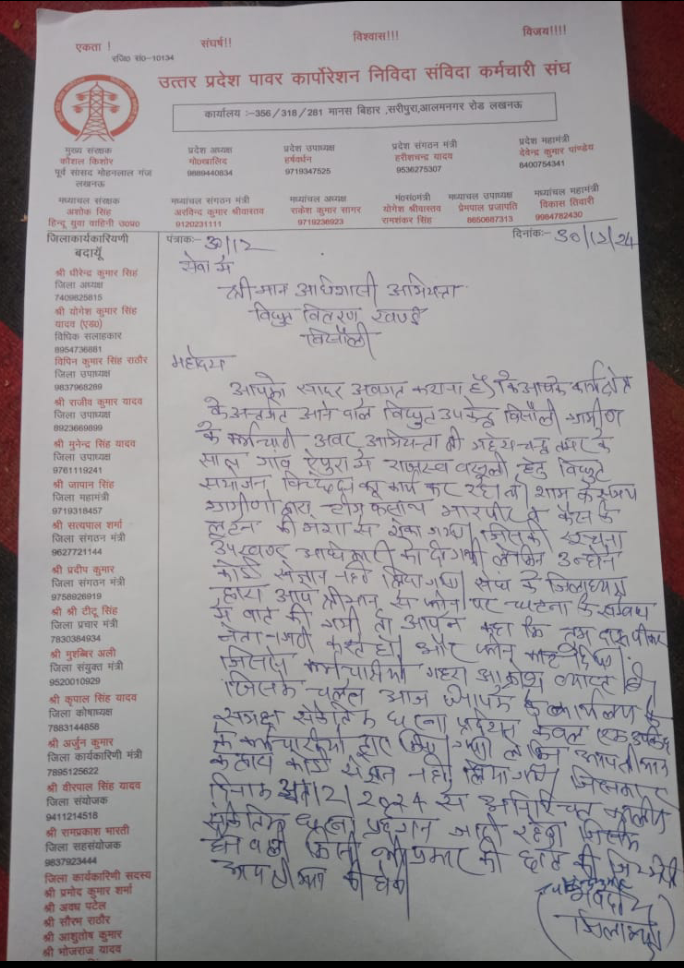 एकता ! संघर्ष!! विश्वास!!! विजय!!!!
रजि0 सं0–10134
उत्तर प्रदेश पावर कार्पोरेशन निविदा संविदा कर्मचारी संघ
कार्यालय :–356/318/281 मानस बिहार ,सरीपुरा,आलमनगर रोड लखनऊ
मुख्य संरक्षक
कौशल किशोर
पूर्व सांसद मोहनलाल गंज
लखनऊ
प्रदेश अध्यक्ष
मो0खालिद
9889440834
प्रदेश उपाध्यक्ष
हर्षवर्धन
9719347525
प्रदेश संगठन मंत्री
हरीशचन्द्र यादव
9536275307
प्रदेश महामंत्री
देवेन्द्र कुमार पाण्डेय
8400754341
मध्यांचल संरक्षक
अशोक सिंह
हिन्दू युवा वाहिनी उ0प्र0
मध्यांचल संगठन मंत्री
अरविन्द कुमार श्रीवास्तव
9120231111
मध्यांचल अध्यक्ष
राकेश कुमार सागर
9719236923
मं0सं0मंत्री
योगेश श्रीवास्तव
रामशंकर सिंह
मध्यांचल उपाध्यक्ष
प्रेमपाल प्रजापति
8650687313
मध्यांचल महामंत्री
विकास तिवारी
9984782430
जिलाकार्यकारियणी
बदायूँ
श्री धीरेन्द्र कुमार सिंह
जिला अध्यक्ष
7409825815
श्री योगेश कुमार सिंह
यादव (एड0)
विधिक सलाहकार
8954736881
विपिन कुमार सिंह राठौर
जिला उपाध्यक्ष
9837968289
श्री राजीव कुमार यादव
जिला उपाध्यक्ष
8923669899
श्री मुनेन्द्र सिंह यादव
जिला उपाध्यक्ष
9761119241
श्री जापान सिंह
जिला महामंत्री
9719318457
श्री सत्यपाल शर्मा
जिला संगठन मंत्री
9627721144
श्री प्रदीप कुमार
जिला संगठन मंत्री
9758926919
श्री श्री टीटू सिंह
जिला प्रचार मंत्री
7830384934
श्री मुशब्बिर अली
जिला संयुक्त मंत्री
9520010929
श्री कृपाल सिंह यादव
जिला कोषाध्यक्ष
7883144858
श्री अर्जुन कुमार
जिला कार्यकारिणी मंत्री
7895125622
श्री वीरपाल सिंह यादव
जिला संयोजक
9411214518
श्री रामप्रकाश भारती
जिला सहसंयोजक
9837923444
जिला कार्यकारिणी सदस्य
श्री प्रमोद कुमार शर्मा
श्री अवध पटेल
श्री सौरम राठौर
श्री आशुतोष कुमार
श्री भोजराज यादव
पत्रांकः– 30/12 दिनांकः– 30/12/24
सेवा में
श्रीमान अधिशासी अभियन्ता
विद्युत वितरण खण्ड
बिसौली
महोदय
आपको सादर अवगत कराना है कि आपके कार्यक्षेत्र
के अन्तर्गत आने वाले विद्युत उपकेन्द्र बिसौली ग्रामीण
के कर्मचारी अवर अभियन्ता श्री के
साथ गांव में राजस्व वसूली हेतु विद्युत
संयोजन विच्छेदन का कार्य कर रहे थे शाम के समय
ग्रामीणों द्वारा टीम के साथ मारपीट व कैस के
लूटने की मंशा से रोका गया जिसकी सूचना
उपखण्ड अधिकारी को दी गयी लेकिन उन्होंने
कोई संज्ञान नहीं लिया गया संघ के जिलाध्यक्ष
द्वारा आप श्रीमान से फोन पर घटना के सम्बंध
में बात की गयी तो आपने कहा कि तुम दारू पीकर
नेतागर्दी करते हो और फोन काट दिया
जिससे कर्मचारियों गहरा आक्रोश व्याप्त है
जिसके चलते आज आपके कार्यालय के
समक्ष सांकेतिक धरना प्रदर्शन केवल एक
के कर्मचारियों द्वारा किया गया लेकिन आप श्रीमान
के द्वारा कोई संज्ञान नहीं लिया गया
दिनांक 2024 से अनिश्चित कालीन
सांकेतिक धरना प्रदर्शन जारी रहेगा जिसके
होने वाली किसी भी प्रकार की की जिम्मेदारी
आप श्रीमान की होगी
भवदीय
जिलाध्यक्ष